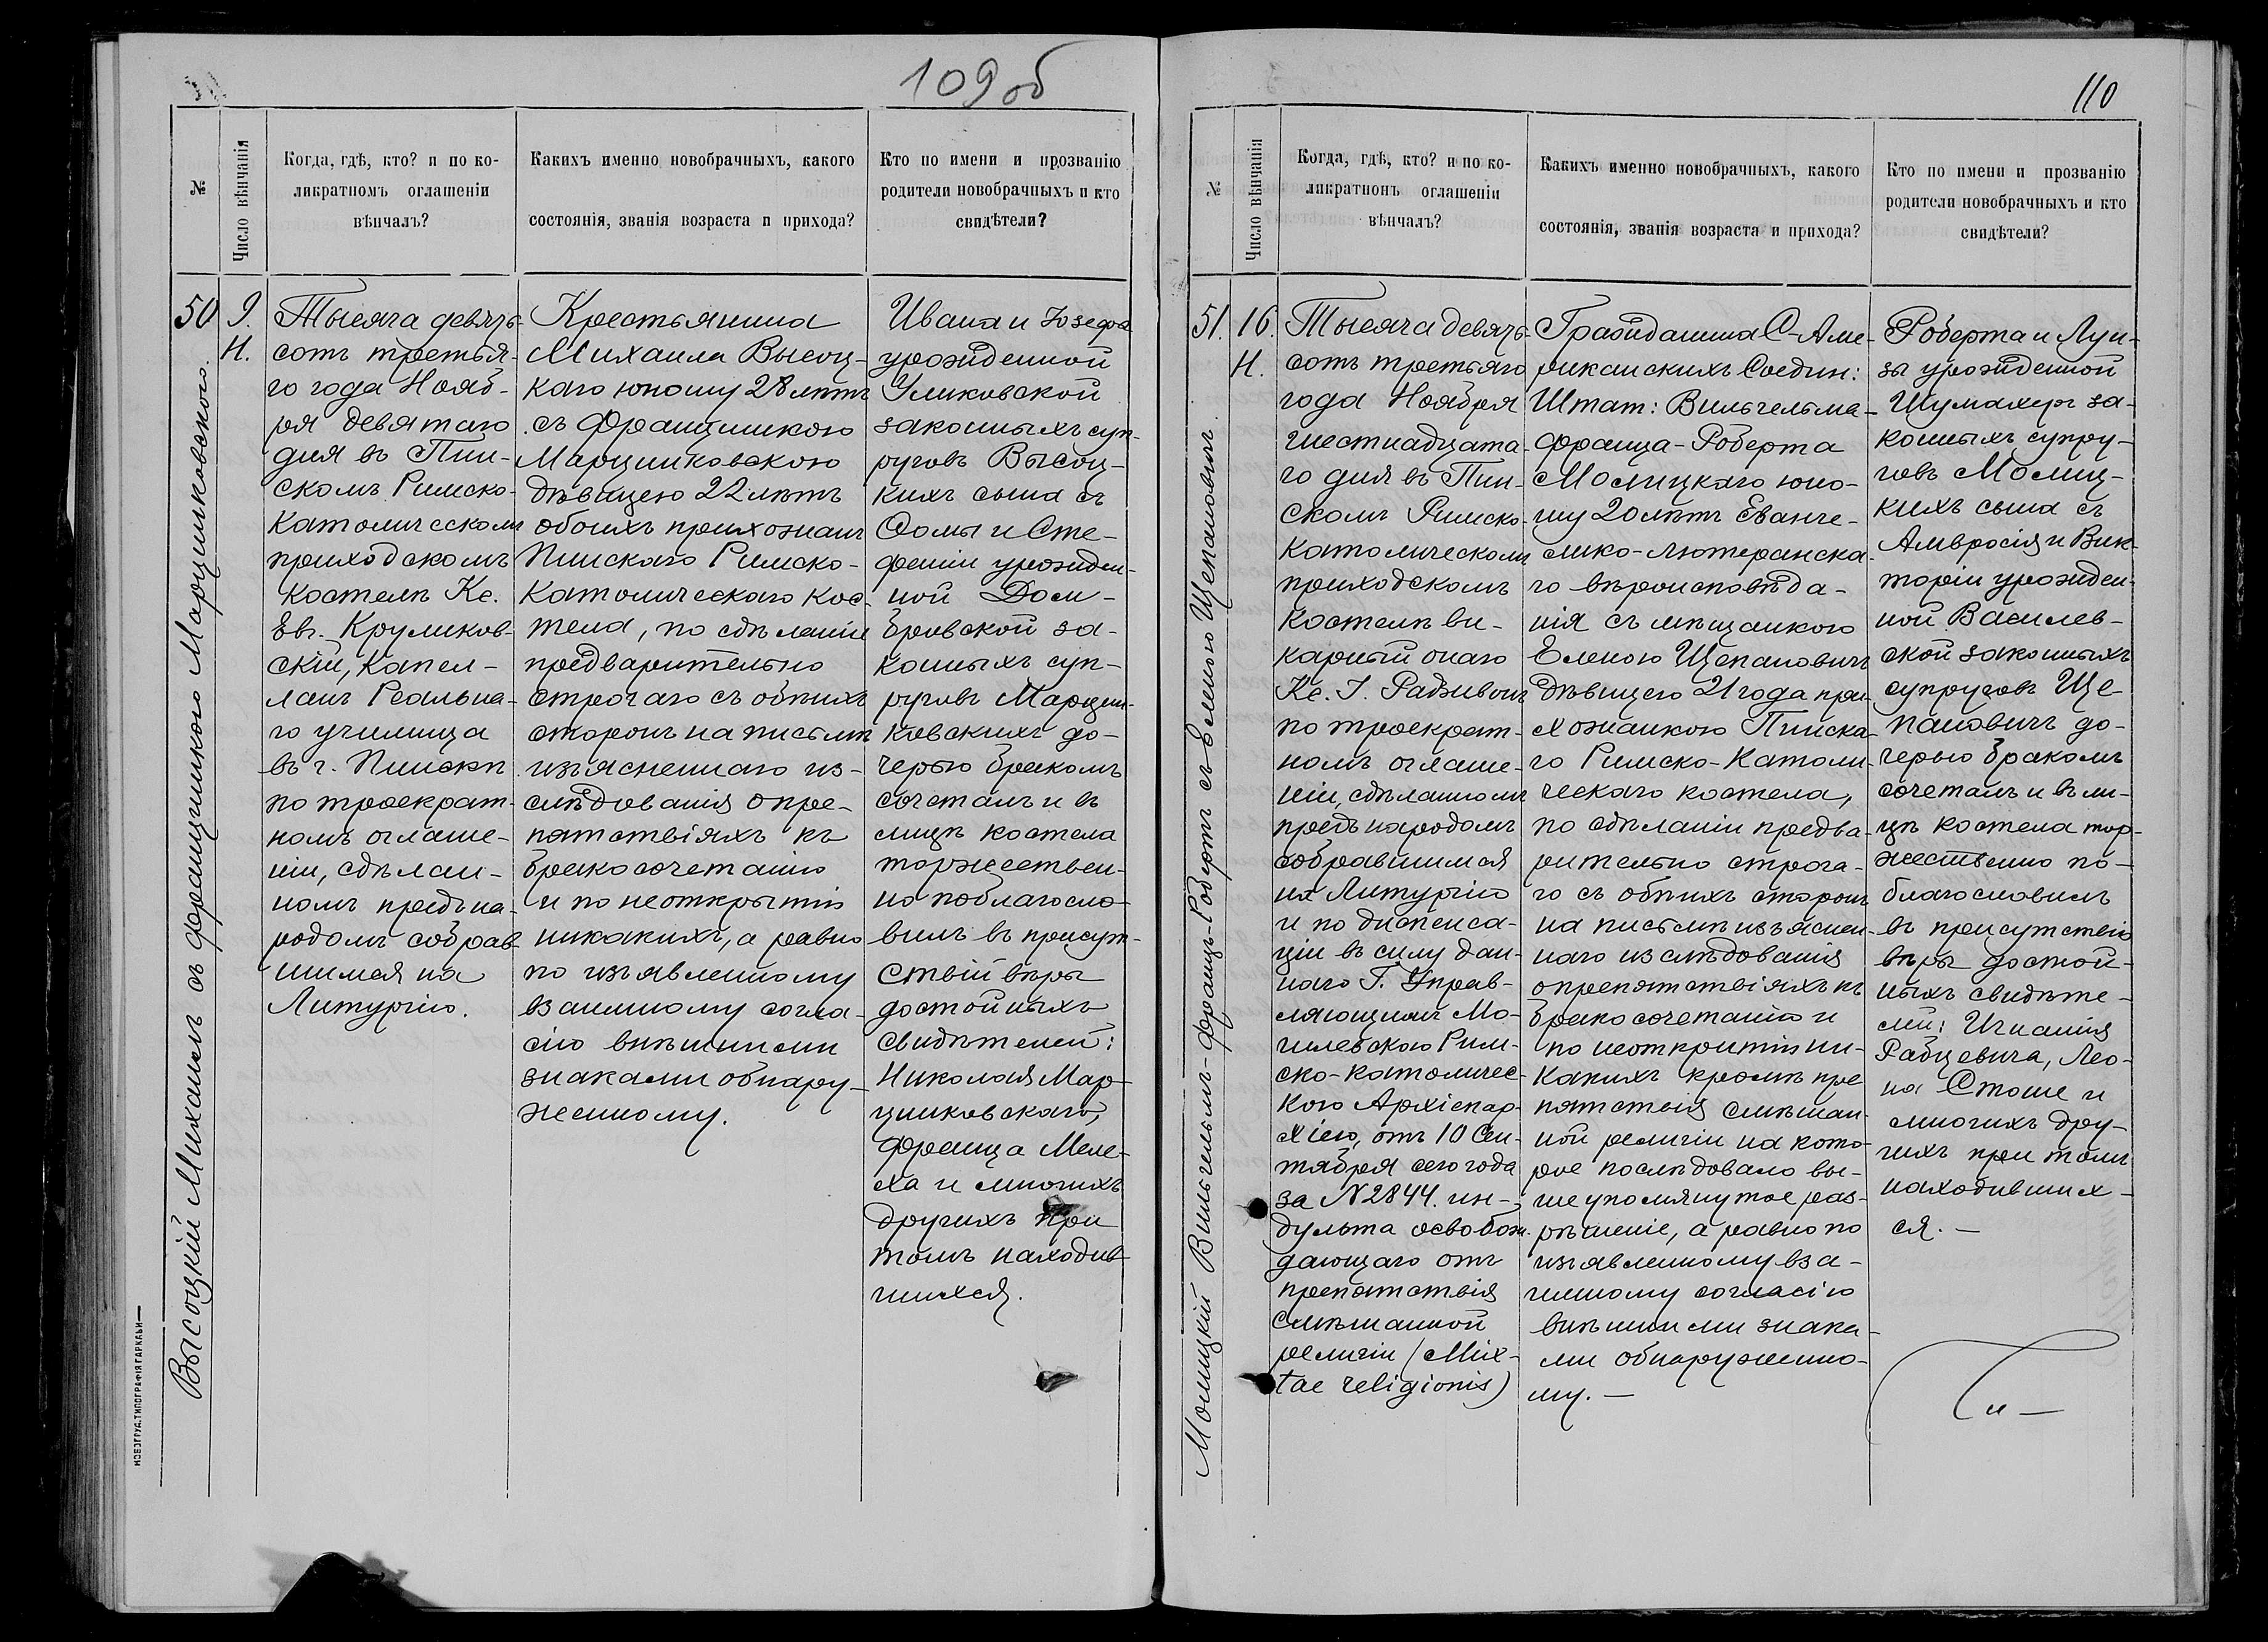 109 об
№
Число вѣнчанія
Когда, гдѣ, кто? и по ко-
ликратномъ оглашеніи
вѣнчалъ?
Какихъ именно новобрачныхъ, какого
состоянія, званія возраста и прихода?
Кто по имени и прозванію
родители новобрачныхъ и кто
свидѣтели?
Высоцкій Михаилъ съ Францишкою Марцинковскою.
50
9.
Н.
Тысяча девять-
сотъ третья-
го года Нояб-
ря девятаго
дня въ Пин-
скомъ Римско-
Католическомъ
приходскомъ
Костелѣ Кс.
Евг. Круликов-
скій, Капел-
ланъ Реальна-
го училища
въ г. Пинскѣ
по троекрат-
номъ оглаше-
ніи, сдѣлан-
номъ предъ на-
родомъ собрав-
шимся на
Литургію.
Крестьянина
Михаила Высоц-
каго юношу 28 лѣтъ
съ Францишкою
Марцинковскою
дѣвицею 22 лѣтъ
обоихъ прихожанъ
Пинскаго Римско-
Католическаго Кос-
тела, по сдѣланіи
предварительно
строгаго съ обѣихъ
сторонъ на письмѣ
изъясненнаго из-
слѣдованія о пре-
пятствіяхъ къ
бракосочетанію
и по неоткрытію
никакихъ, а равно
по изъявленному
взаимному согла-
сію внѣшними
знаками обнару-
женному.
Ивана и Юзефы
урожденной
Уликовской
законныхъ суп-
руговъ Высоц-
кихъ сына съ
Ѳомы и Сте-
фаніи урожден-
ной Дом-
бровской за-
конныхъ суп-
руговъ Марцин-
ковскихъ до-
черью бракомъ
сочеталъ и въ
лицѣ костела
торжествен-
но поблагосло-
вилъ въ присут-
ствіи вѣры
достойныхъ
свидѣтелей:
Николая Мар-
цинковскаго,
Франца Меле-
ха и многихъ
другихъ при
томъ находив-
шихся.
НОВОГРУД. ТИПОГРАФІЯ ГАРКАВИ
110
№
Число вѣнчанія
Когда, гдѣ, кто? и по ко-
ликратномъ оглашеніи
вѣнчалъ?
Какихъ именно новобрачныхъ, какого
состоянія, званія возраста и прихода?
Кто по имени и прозванію
родители новобрачныхъ и кто
свидѣтели?
Молицкій Вильгельмъ-Францъ-Робертъ съ Еленою Щепановичъ
51.
16.
Н.
Тысяча девять-
сотъ третьяго
года Ноября
шестнадцата-
го дня въ Пин-
скомъ Римско-
католическомъ
приходскомъ
Костелѣ ви-
карный онаго
Кс. І. Радзивонъ
по троекрат-
номъ оглаше-
ніи, сдѣланномъ
предъ народомъ
собравшимся
на Литургію
и по диспенса-
ціи въ силу дан-
наго Г. Управ-
ляющимъ Мо-
гилевскою Рим-
ско-католичес-
кою Архіепар-
хіею, отъ 10 Сен-
тября сего года
за N 2844. ин-
дульта освобож-
дающаго отъ
препятствія
смѣшанной
религіи (Mix-
tae religionis)
Гражданина С-Аме-
риканскихъ Соедин:
Штат: Вильгельма-
Франца-Роберта
Молицкаго юно-
шу 20 лѣтъ Еванге-
лико-лютеранска-
го вѣроисповѣда-
нія съ мѣщанкою
Еленою Щепановичъ
дѣвицею 21 года при-
хожанкою Пинска-
го Римско-Католи-
ческаго костела,
по сдѣланіи предва-
рительно строга-
го съ обѣихъ сторонъ
на письмѣ изъяснен-
наго изслѣдованія
о препятствіяхъ къ
бракосочетанію и
по неоткрытію ни-
какихъ кромѣ пре
пятствія смѣшан-
ной религіи на кото-
рое послѣдовало вы-
шеупомянутое раз-
рѣшеніе, а равно по
изъявленному вза-
имному согласію
внѣшними знака-
ми обнаруженно-
му. —
Роберта и Луи-
зы урожденной
Шумахеръ за-
конныхъ супру-
говъ Молиц-
кихъ сына съ
Амвросія и Вик-
торіи урожден-
ной Василев-
ской законныхъ
супруговъ Ще-
пановичъ до-
черью бракомъ
сочеталъ и въ ли-
цѣ костела тор-
жественно по-
благословилъ
въ присутствіи
вѣры достой-
ныхъ свидѣте-
лей: Игнатія
Рабцевича, Лео-
на Стоше и
многихъ дру-
гихъ при томъ
находивших-
ся. —